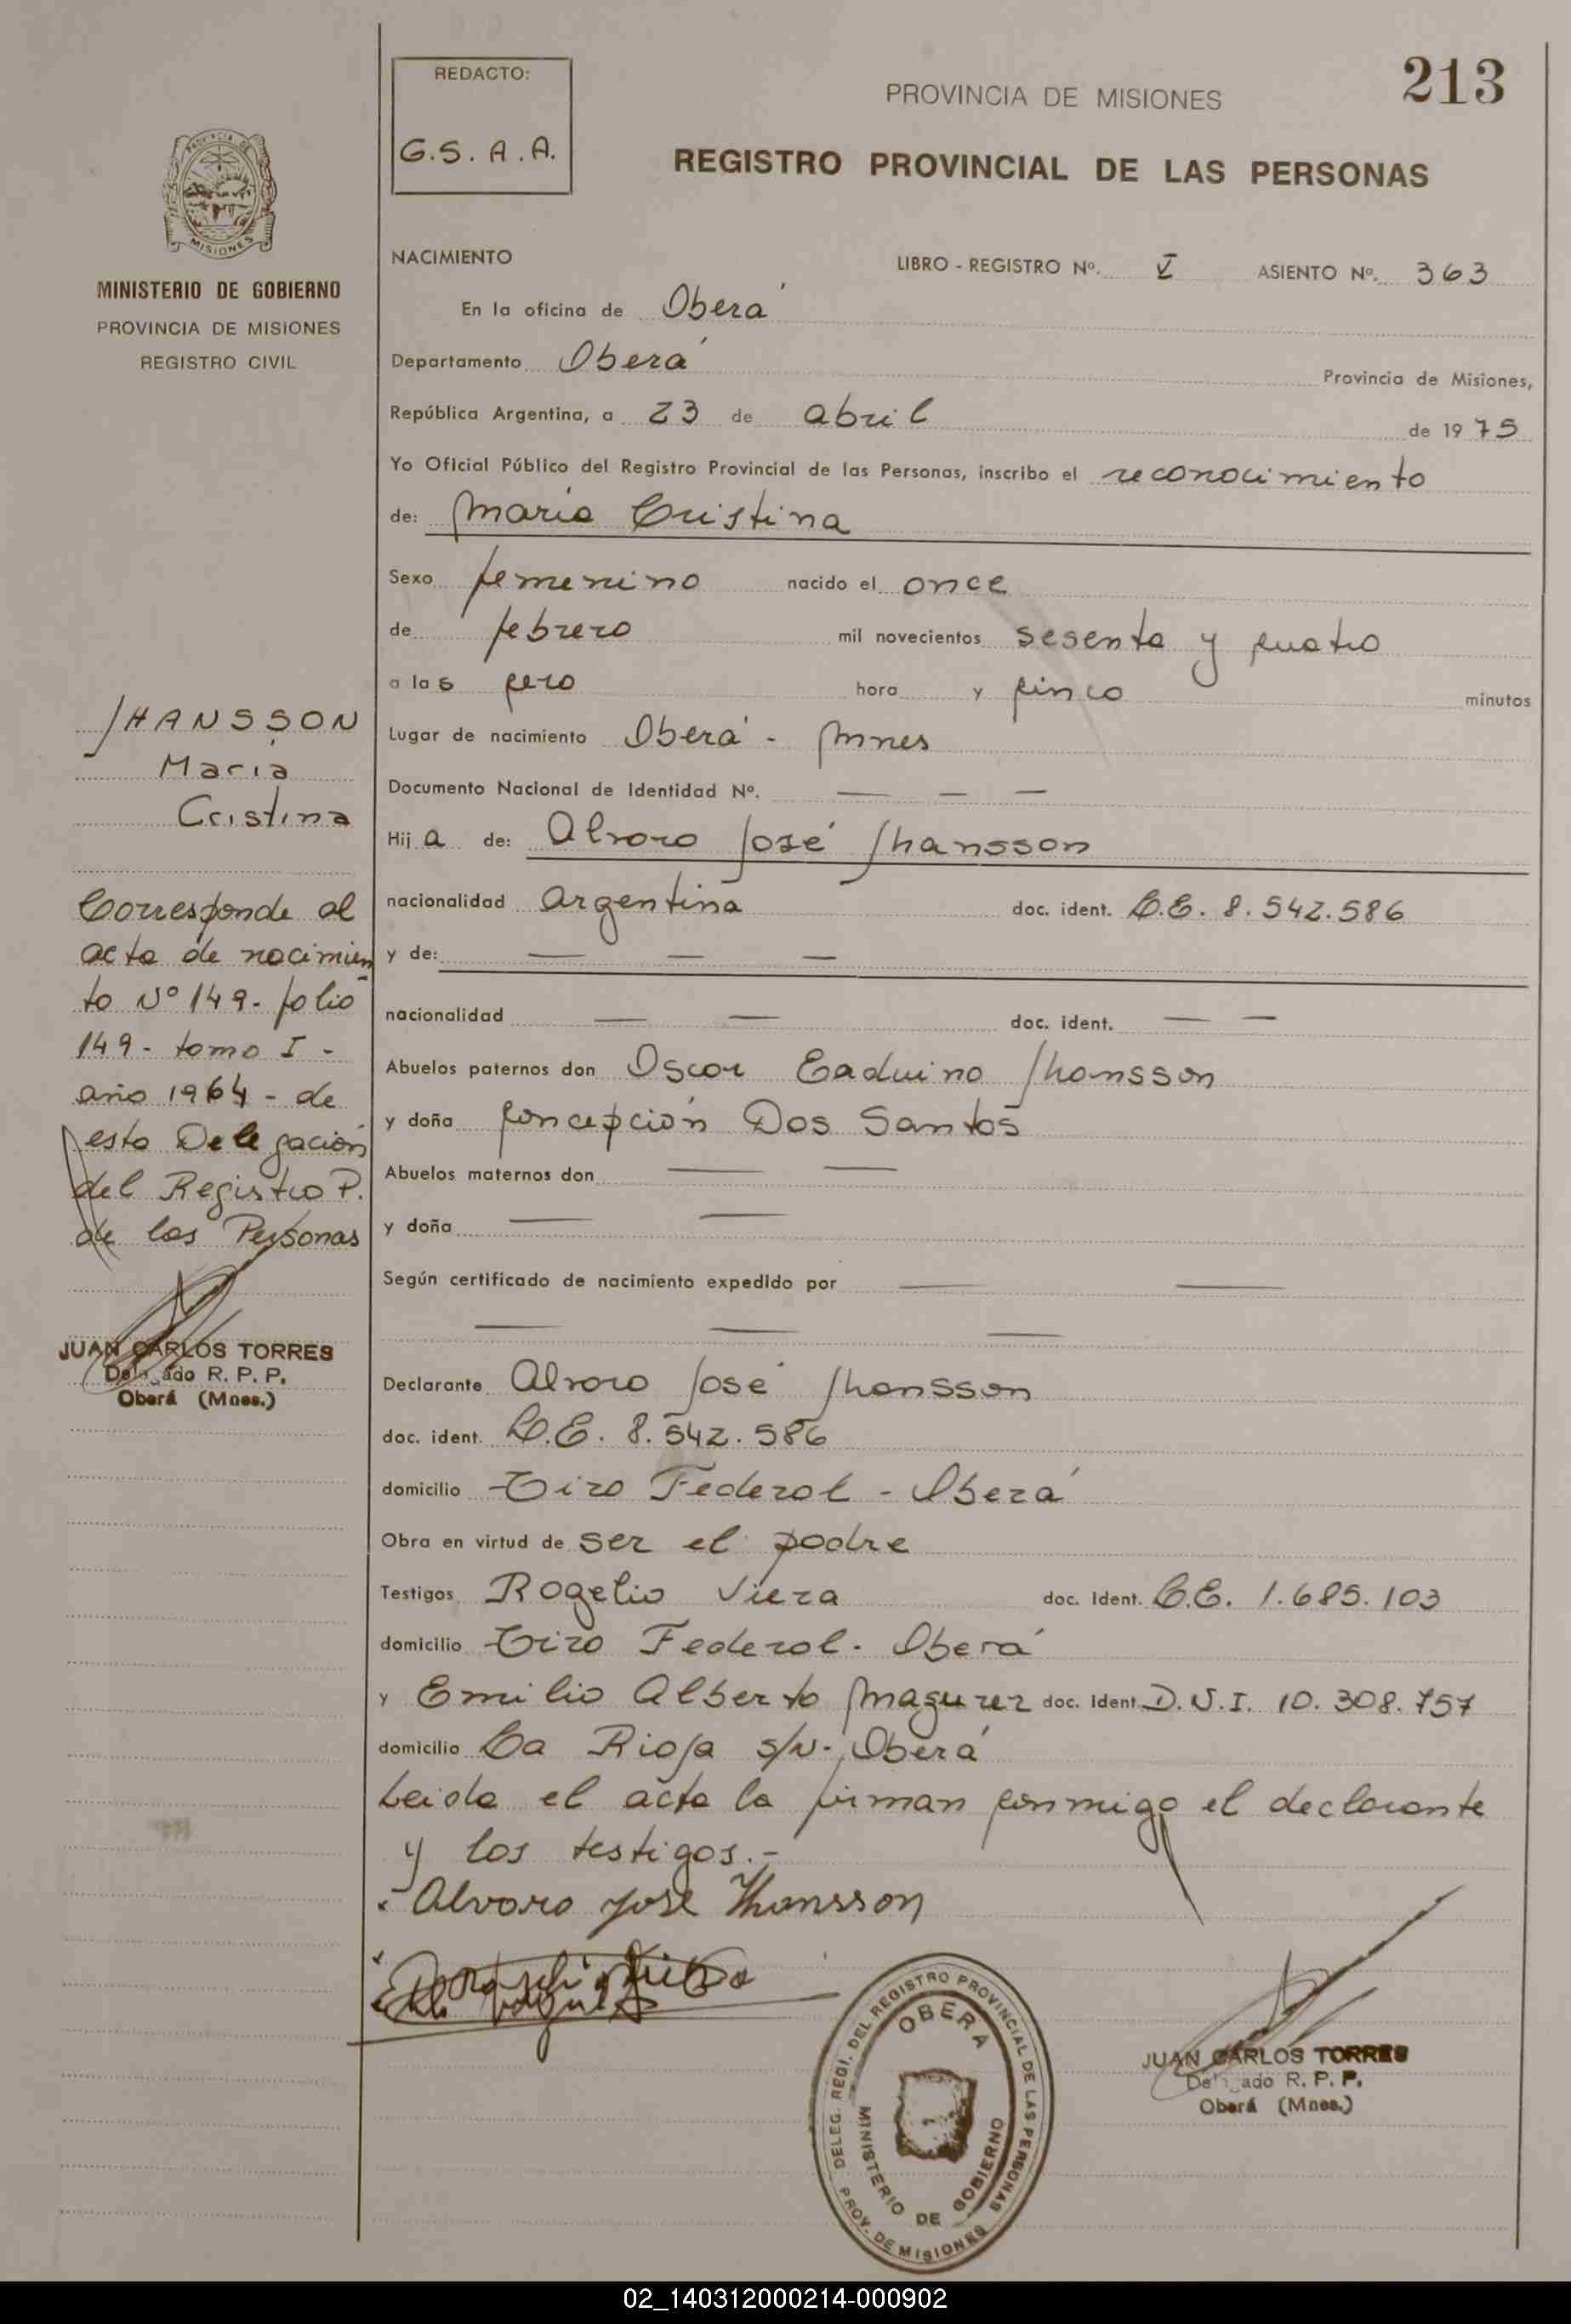 213
REDACTO:
G.S.A.A.
PROVINCIA DE MISIONES
REGISTRO PROVINCIAL DE LAS PERSONAS
MISIONES
MINISTERIO DE GOBIERNO
PROVINCIA DE MISIONES
REGISTRO CIVIL
NACIMIENTO LIBRO - REGISTRO Nº. V ASIENTO Nº. 363
En la oficina de Oberá
Departamento Oberá Provincia de Misiones,
República Argentina, a 23 de abril de 19 75
Yo Oficial Público del Registro Provincial de las Personas, inscribo el reconocimiento
de: María Cristina
Sexo femenino nacido el once
de febrero mil novecientos sesenta y cuatro
a las cero hora y cinco minutos
Lugar de nacimiento Oberá - Mnes
Documento Nacional de Identidad Nº. — — —
Hija de: Alvaro José Jhansson
nacionalidad argentina doc. ident. L.E. 8.542.586
y de: — — —
nacionalidad — — doc. ident. — —
Abuelos paternos don Oscar Eaduino Jhansson
y doña Concepción Dos Santos
Abuelos maternos don — —
y doña — —
Según certificado de nacimiento expedido por — —
— — —
Declarante Alvaro José Jhansson
doc. ident. L.E. 8.542.586
domicilio Tiro Federal - Oberá
Obra en virtud de ser el padre
Testigos Rogelio Viera doc. Ident. L.E. 1.685.103
domicilio Tiro Federal - Oberá
y Emilio Alberto doc. Ident. D.N.I. 10.308.757
domicilio La Rioja s/N - Oberá
Leida el acta la firman conmigo el declarante
y los testigos.-
Alvaro José Jhansson
JHANSSON
María
Cristina
Corresponde al
acta de nacimien
to Nº 149 - folio
149 - tomo I -
año 1964 - de
esta Delegación
del Registro P.
de las Personas
JUAN CARLOS TORRES
Delegado R. P. P.
Oberá (Mnes.)
DELEG. REGI. DEL REGISTRO PROVINCIAL DE LAS PERSONAS
OBERA
MINISTERIO DE GOBIERNO
PROV. DE MISIONES
JUAN CARLOS TORRES
Delegado R. P. P.
Oberá (Mnes.)
02_140312000214-000902